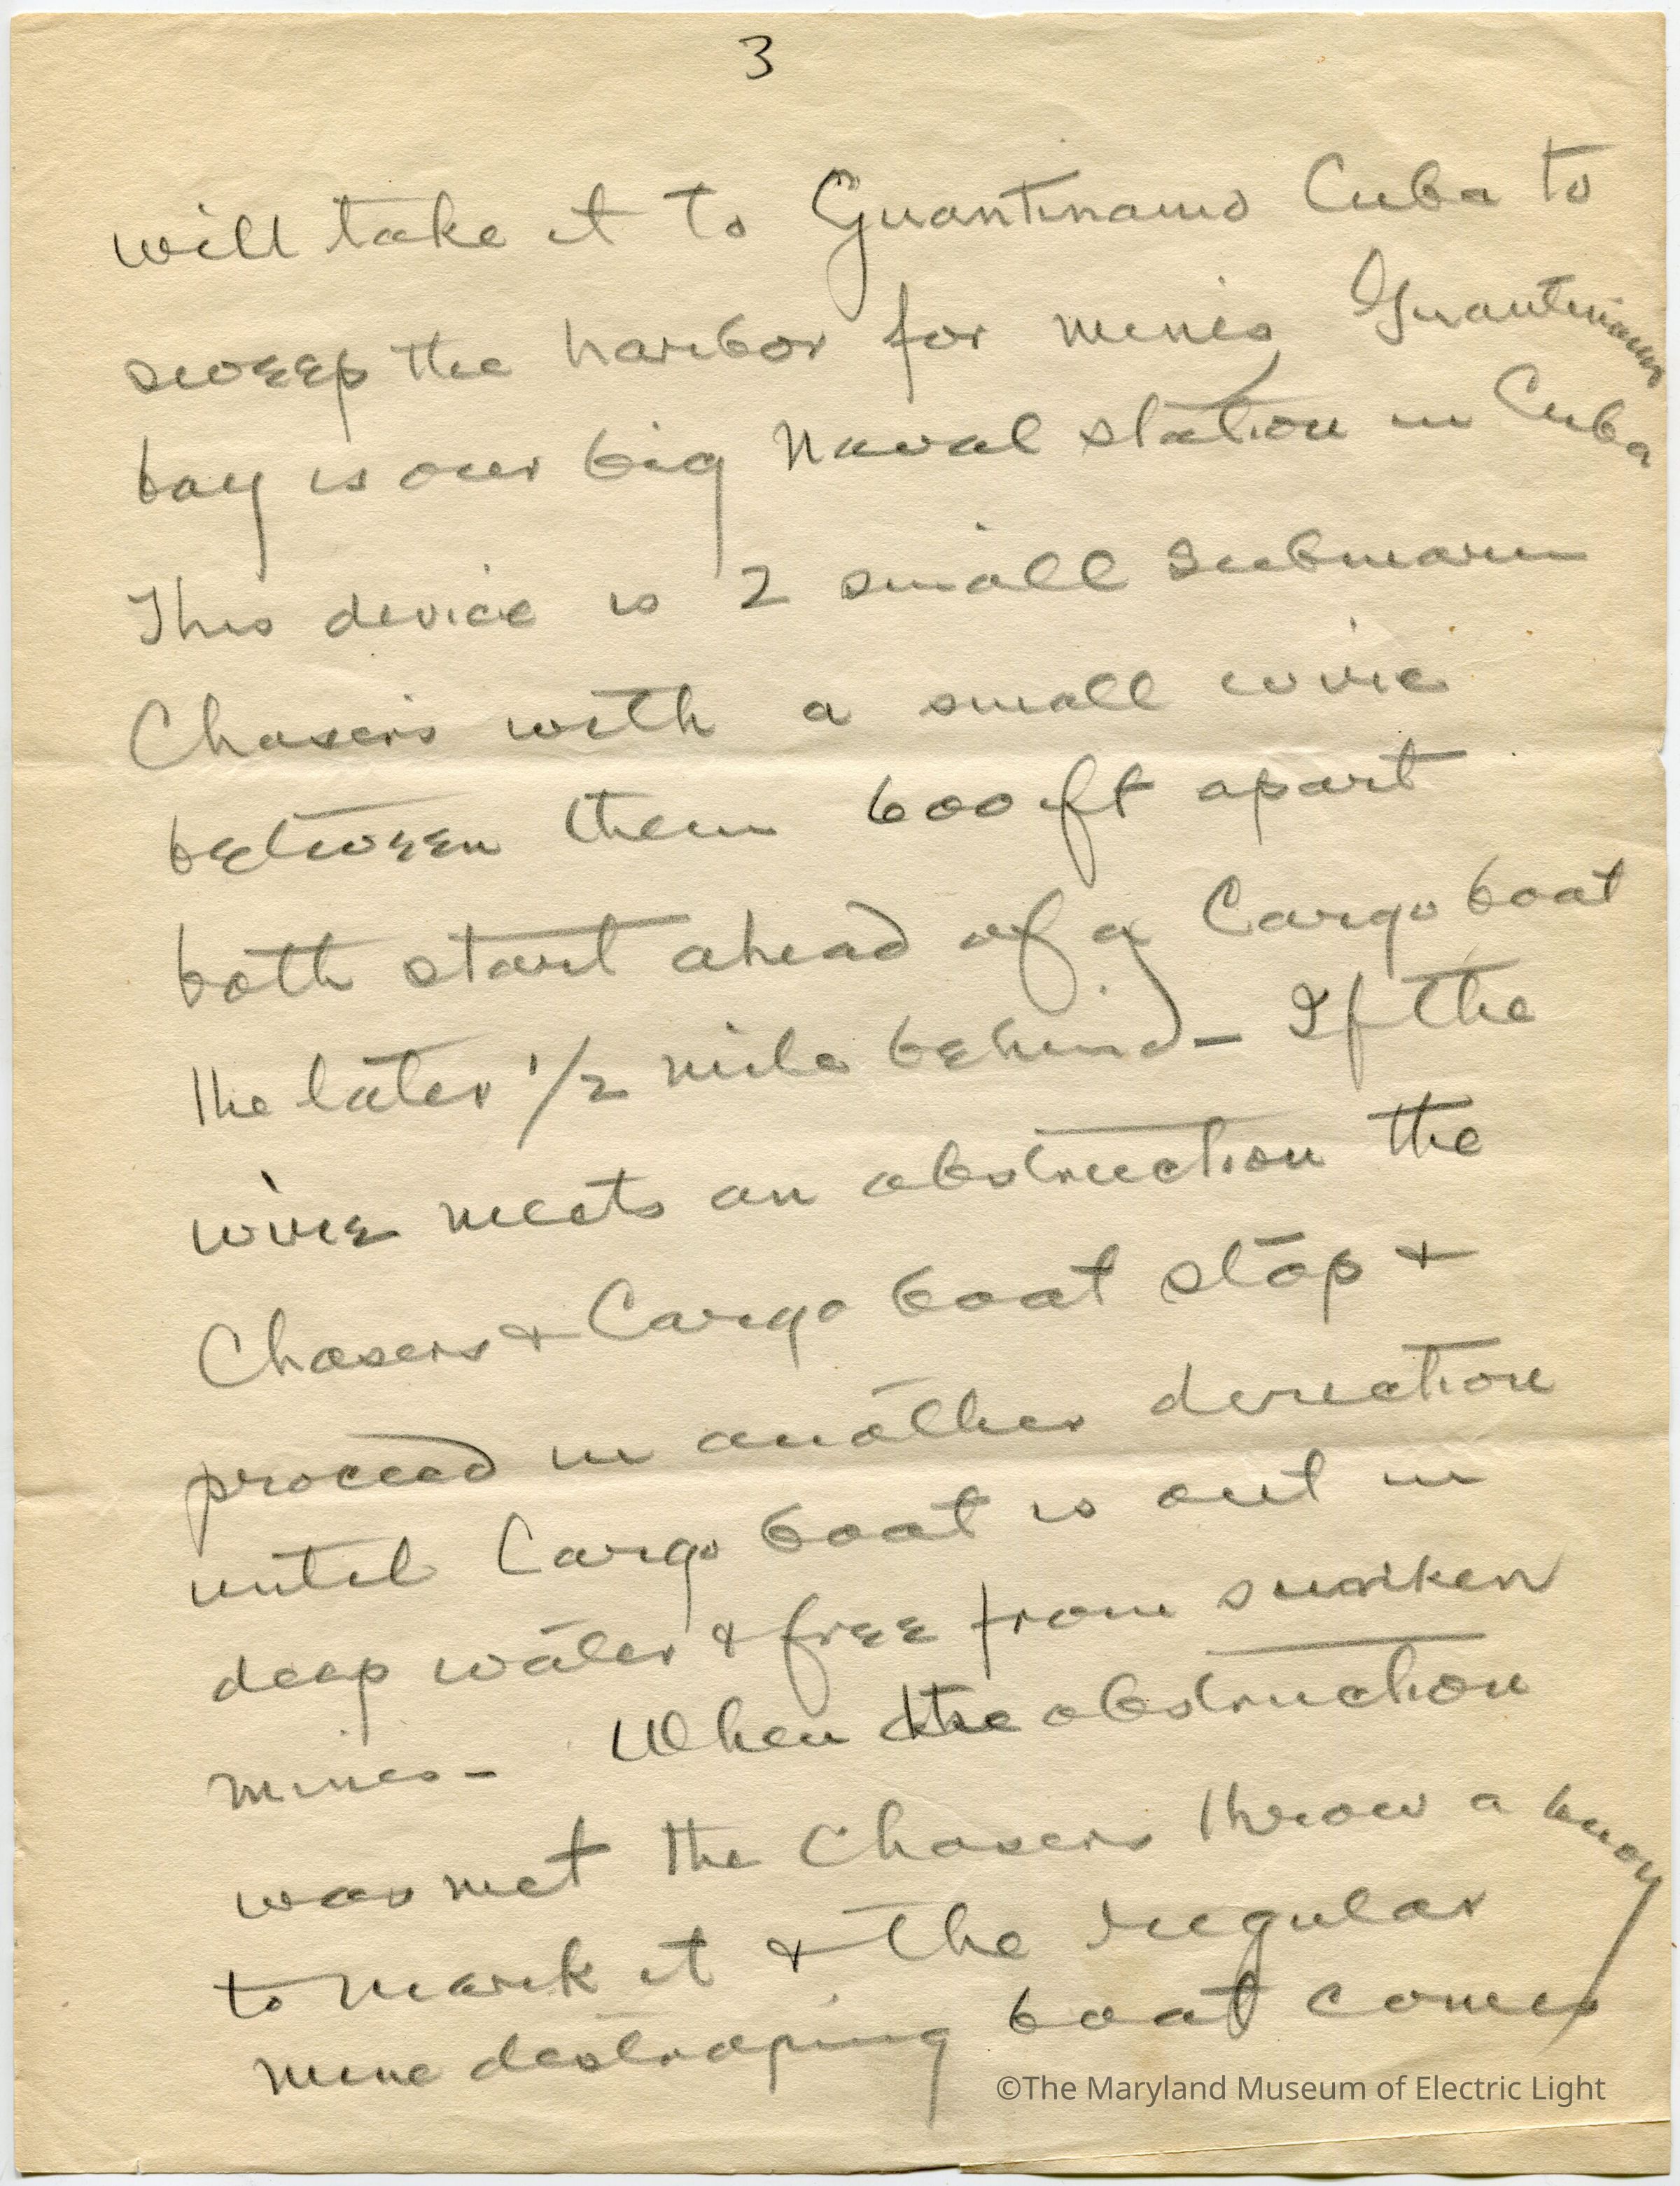 3
will take it to Guantinamo Cuba to
sweep the harbor for mines Guantinamo
bay is our big Naval station in Cuba
This device is 2 small Submarin
Chasers with a small wire
between them 600 ft apart
both start ahead of a Cargo boat
the later 1/2 mile behind - If the
wire meets an obstruction the
Chasers & Cargo boat stop &
proceed in another direction
until Cargo boat is out in
deep water & free from sunken
mines - When the obstruction
was met the Chasers throw a buoy
to mark it & the regular
mine destroying boat comes
©The Maryland Museum of Electric Light